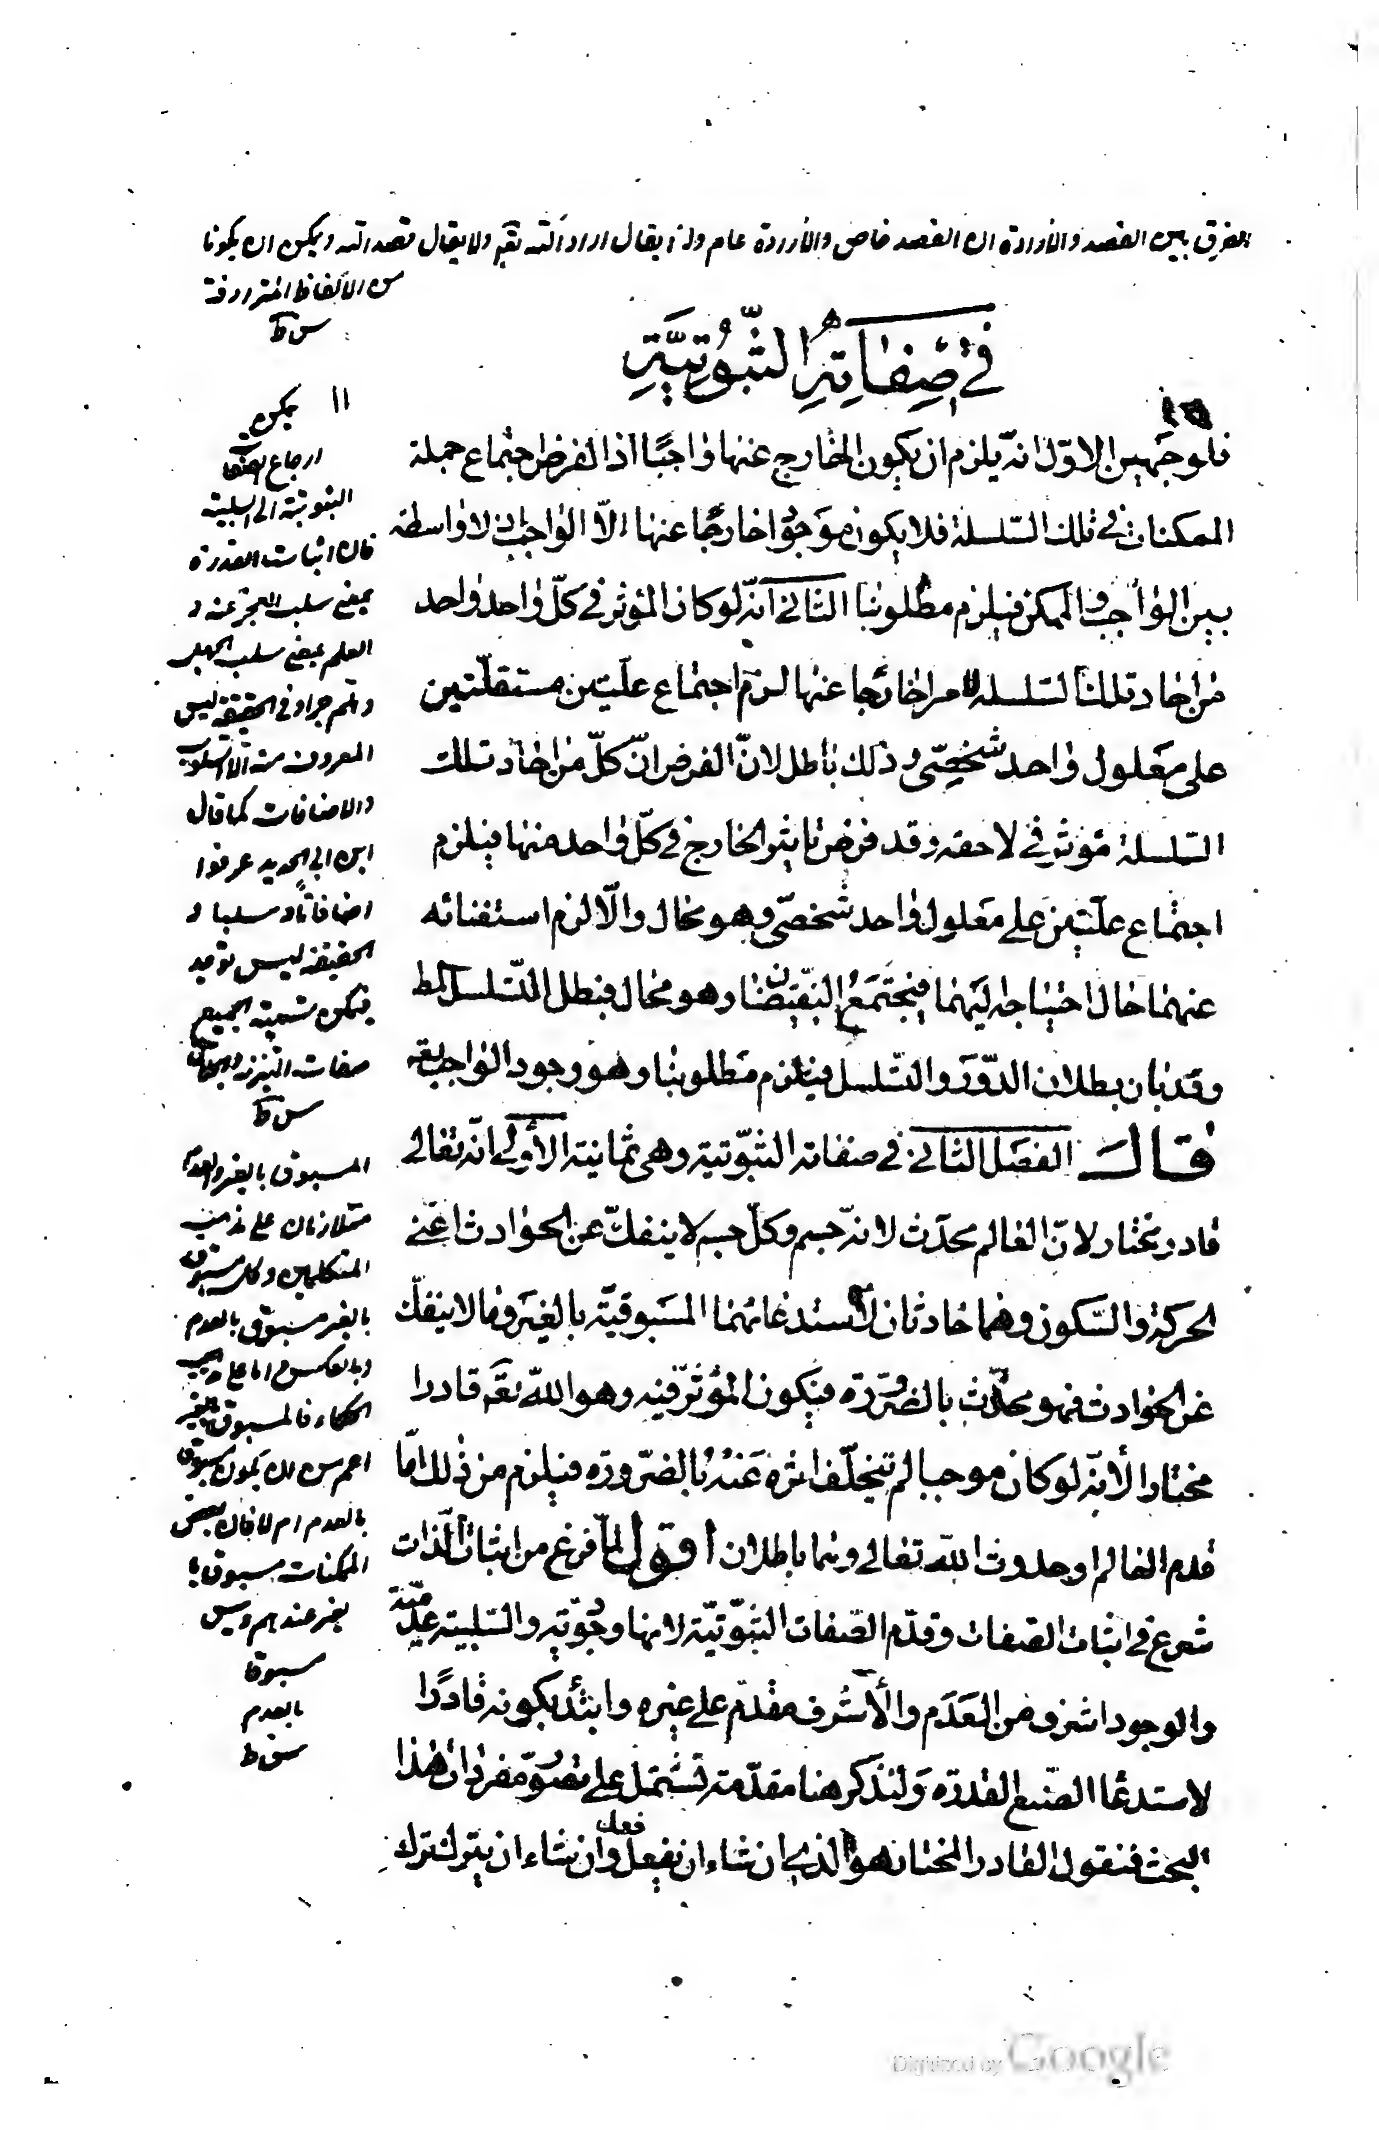 الفرق بين القصد والارادة ان القصد خاص والارادة عام ولذا يقال اراد الله تقم ولا يقال قصد الله ويمكن ان يكونا
من الألفاظ المترادفة
س ط
في صفاته الثبوتية
فلوجهين الاول انه يلزم ان يكون الخارج عنها واجبًا اذ الفرض اجتماع جملة
الممكنات في تلك السلسلة فلا يكون موجودا خارجًا عنها الّا الواجب اذ لا واسطة
بين الواجب والممكن فيلزم مطلوبنا الثاني انه لو كان المؤثر في كلّ واحد واحد
من احاد تلك السلسلة امرا خارجا عنها لزم اجتماع علتين مستقلتين
على معلول واحد شخصي وذلك باطل لانّ الفرض انّ كلّ من احاد تلك
السلسلة مؤثر في لاحقه وقد فرض تاثير الخارج في كلّ واحد منها فيلزم
اجتماع علتين على معلول واحد شخصي وهو محال والّا لزم استغنائه
عنهما حال احتياجه اليهما فيجتمع النقيضان وهو محال فبطل التسلسل المط
وقد بان بطلان الدّور والتسلسل فيلزم مطلوبنا وهو وجود الواجب تقه
قال الفصل الثاني في صفاته الثبوتية وهي ثمانية الأولى انه تعالى
قادر مختار لانّ العالم محدث لانه جسم وكلّ جسم لا ينفك عن الحوادث اعني
الحركة والسكون وهما حادثان لاستدعائهما المسبوقية بالغير وما لا ينفك
عن الحوادث فهو محدث بالضرورة فيكون المؤثر فيه وهو الله تقم قادرا
مختارا لأنّه لو كان موجبا لم يتخلف اثره عنه بالضرورة فيلزم من ذلك امّا
قدم العالم او حدوث الله تعالى وهما باطلان اقول لما فرغ من اثبات الذات
شرع في اثبات الصفات وقدم الصفات الثبوتية لانها وجودية والسلبية عدمية
والوجود اشرف من العدم والأشرف مقدم على غيره وابتدء بكونه قادرًا
لاستدعاء الصنع القدرة ولنذكر هنا مقدمة تشتمل على تصور مفردات هذا
البحث فنقول القادر المختار هو الذي ان شاء ان يفعل فعل وان شاء ان يترك ترك
١١ يمكن
ارجاع الصفات
الثبوتية الى السلبية
فان اثبات القدرة
بمعنى سلب العجز عنه و
العلم بمعنى سلب الجهل
وهلم جرا وفي الحقيقة ليس
المعروف منه الا السلوب
والاضافات كما قال
ابن ابي الحديد عرفوا
اضافات وسلبا و
الحقيقة ليس توجد
فيمكن تسمية الجميع
صفات التنزيه والجلال
س ط
المسبوق بالغير والعدم
متلازمان على مذهب
المتكلمين وكل مسبوق
بالغير مسبوق بالعدم
وبالعكس واما على مذهب
الحكماء فالمسبوق بالغير
اعم من ان يكون مسبوق
بالعدم ام لا فان بعض
الممكنات مسبوق
بغير عندهم وليس
مسبوقا
بالعدم
س ط
Digitized by Google